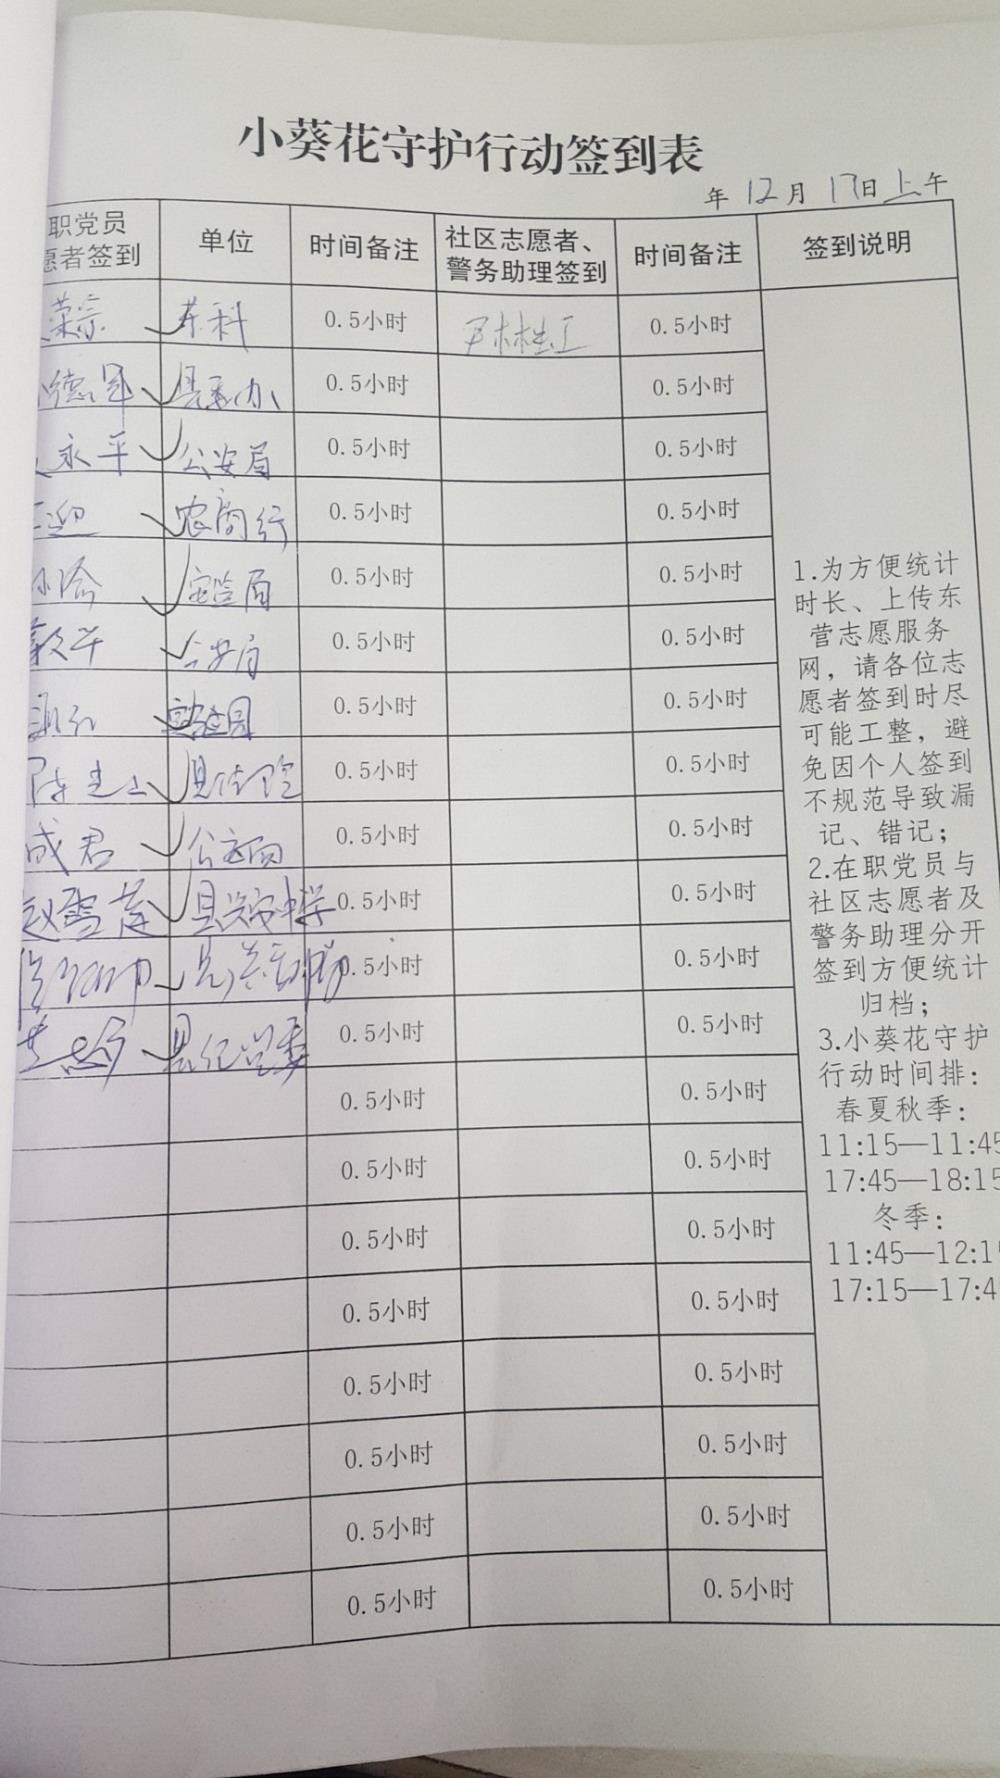 小葵花守护行动签到表
年 12月 17日上午
职党员
愿者签到
单位
时间备注
社区志愿者、
警务助理签到
时间备注
签到说明
荣宗 0.5小时 0.5小时
德 0.5小时 0.5小时
永平 公安局 0.5小时 0.5小时
迎 农商行 0.5小时 0.5小时
安监局 0.5小时 0.5小时
公安局 0.5小时 0.5小时
0.5小时 0.5小时
陈 0.5小时 0.5小时
成君 0.5小时 0.5小时
赵雪莲 0.5小时 0.5小时
0.5小时 0.5小时
县纪监委 0.5小时 0.5小时
0.5小时 0.5小时
0.5小时 0.5小时
0.5小时 0.5小时
0.5小时 0.5小时
0.5小时 0.5小时
0.5小时 0.5小时
0.5小时 0.5小时
0.5小时 0.5小时
1.为方便统计
时长、上传东
营志愿服务
网，请各位志
愿者签到时尽
可能工整，避
免因个人签到
不规范导致漏
记、错记；
2.在职党员与
社区志愿者及
警务助理分开
签到方便统计
归档；
3.小葵花守护
行动时间排：
春夏秋季：
11:15—11:45
17:45—18:15
冬季：
11:45—12:1
17:15—17:4